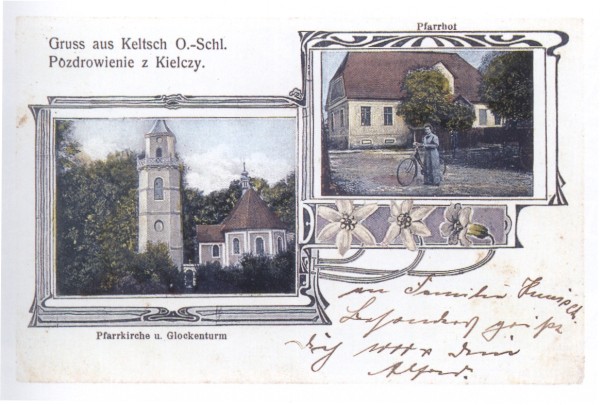 Gruss aus Keltsch O.-Schl.
Pozdrowienie z Kielczy.
Pfarrhof
Pfarrkirche u. Glockenturm
an Familie
Besonders
Dich dein
Alfred.